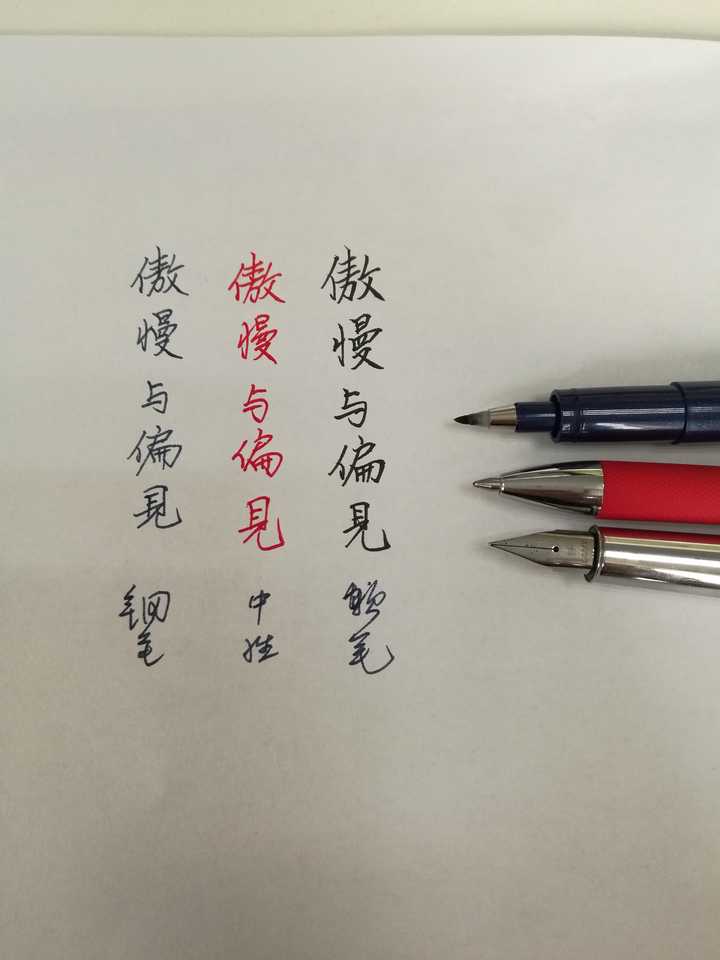 傲慢与偏见
软笔
傲慢与偏见
中性
傲慢与偏见
钢笔